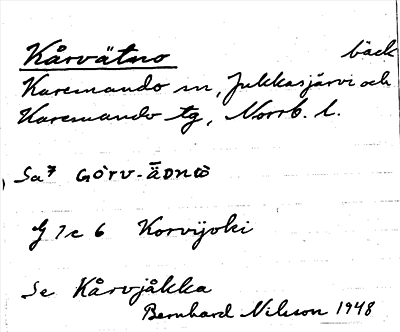 Kårvätno bäck
Karemando sn, Jukkasjärvi och
Karemando tg, Norrb. l.
Sa7 GÒRV-ǟDNO
G 7c 6 Korvijoki
Se Kårvjåkka
Bernhard Nilsson 1948